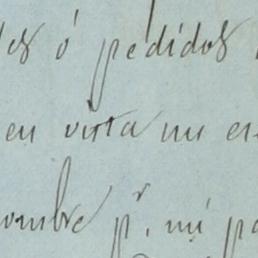 des ó pedidos
en vista mi es
nombre pr. mi pa